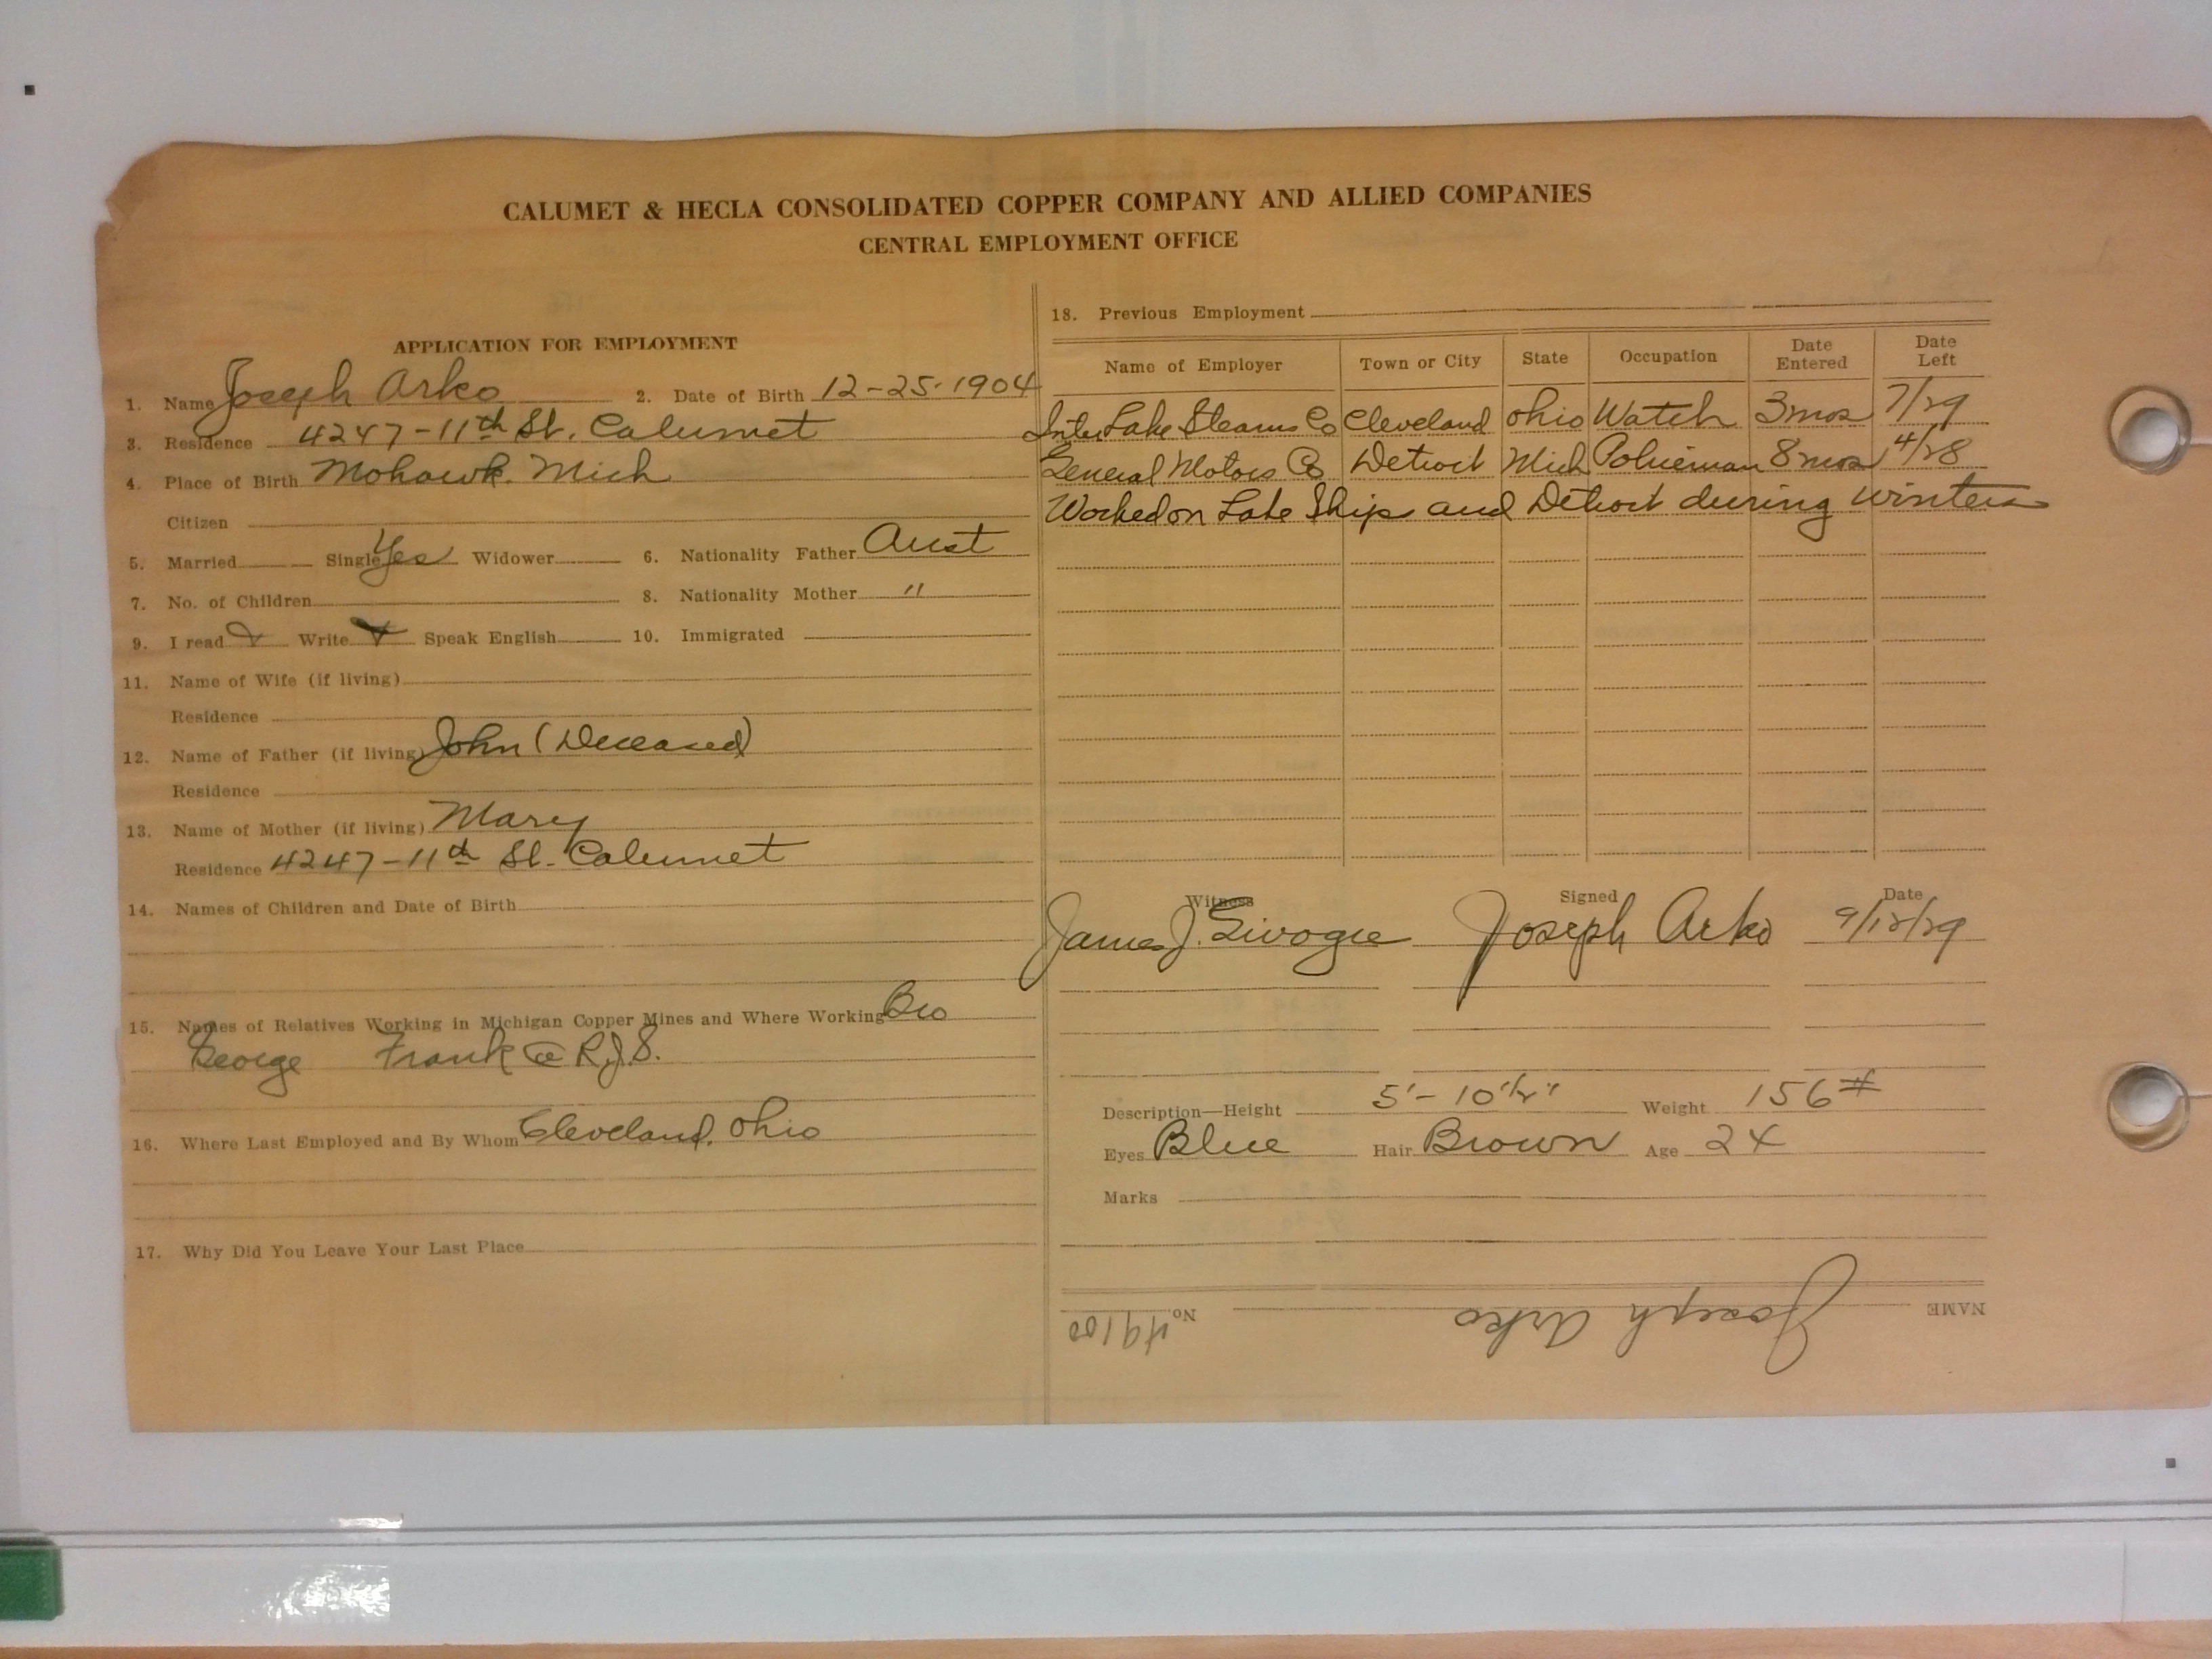 CALUMET & HECLA CONSOLIDATED COPPER COMPANY AND ALLIED COMPANIES
CENTRAL EMPLOYMENT OFFICE
APPLICATION FOR EMPLOYMENT
1. Name Joseph Arko 2. Date of Birth 12-25-1904
3. Residence 4247-11th St. Calumet
4. Place of Birth Mohawk. Mich
Citizen
5. Married Single Yes Widower 6. Nationality Father Aust
7. No. of Children 8. Nationality Mother "
9. I read Write Speak English 10. Immigrated
11. Name of Wife (if living)
Residence
12. Name of Father (if living) John (Deceased)
Residence
13. Name of Mother (if living) Mary
Residence 4247-11th St. Calumet
14. Names of Children and Date of Birth
15. Names of Relatives Working in Michigan Copper Mines and Where Working Bro
George Frank @ R.J.S.
16. Where Last Employed and By Whom Cleveland, Ohio
17. Why Did You Leave Your Last Place
18. Previous Employment
Name of Employer Town or City State Occupation Date Entered Date Left
Inter Lake Steams Co Cleveland Ohio Watch 3 mos 7/29
General Motors Co Detroit Mich Policeman 8 mos 4/28
Worked on Lake Ships and Detroit during winters
Witness Signed Date
James J. Joseph Arko 9/12/29
Description—Height 5'-10 1/2" Weight 156#
Eyes Blue Hair Brown Age 24
Marks
NAME Joseph Arko No. 49100